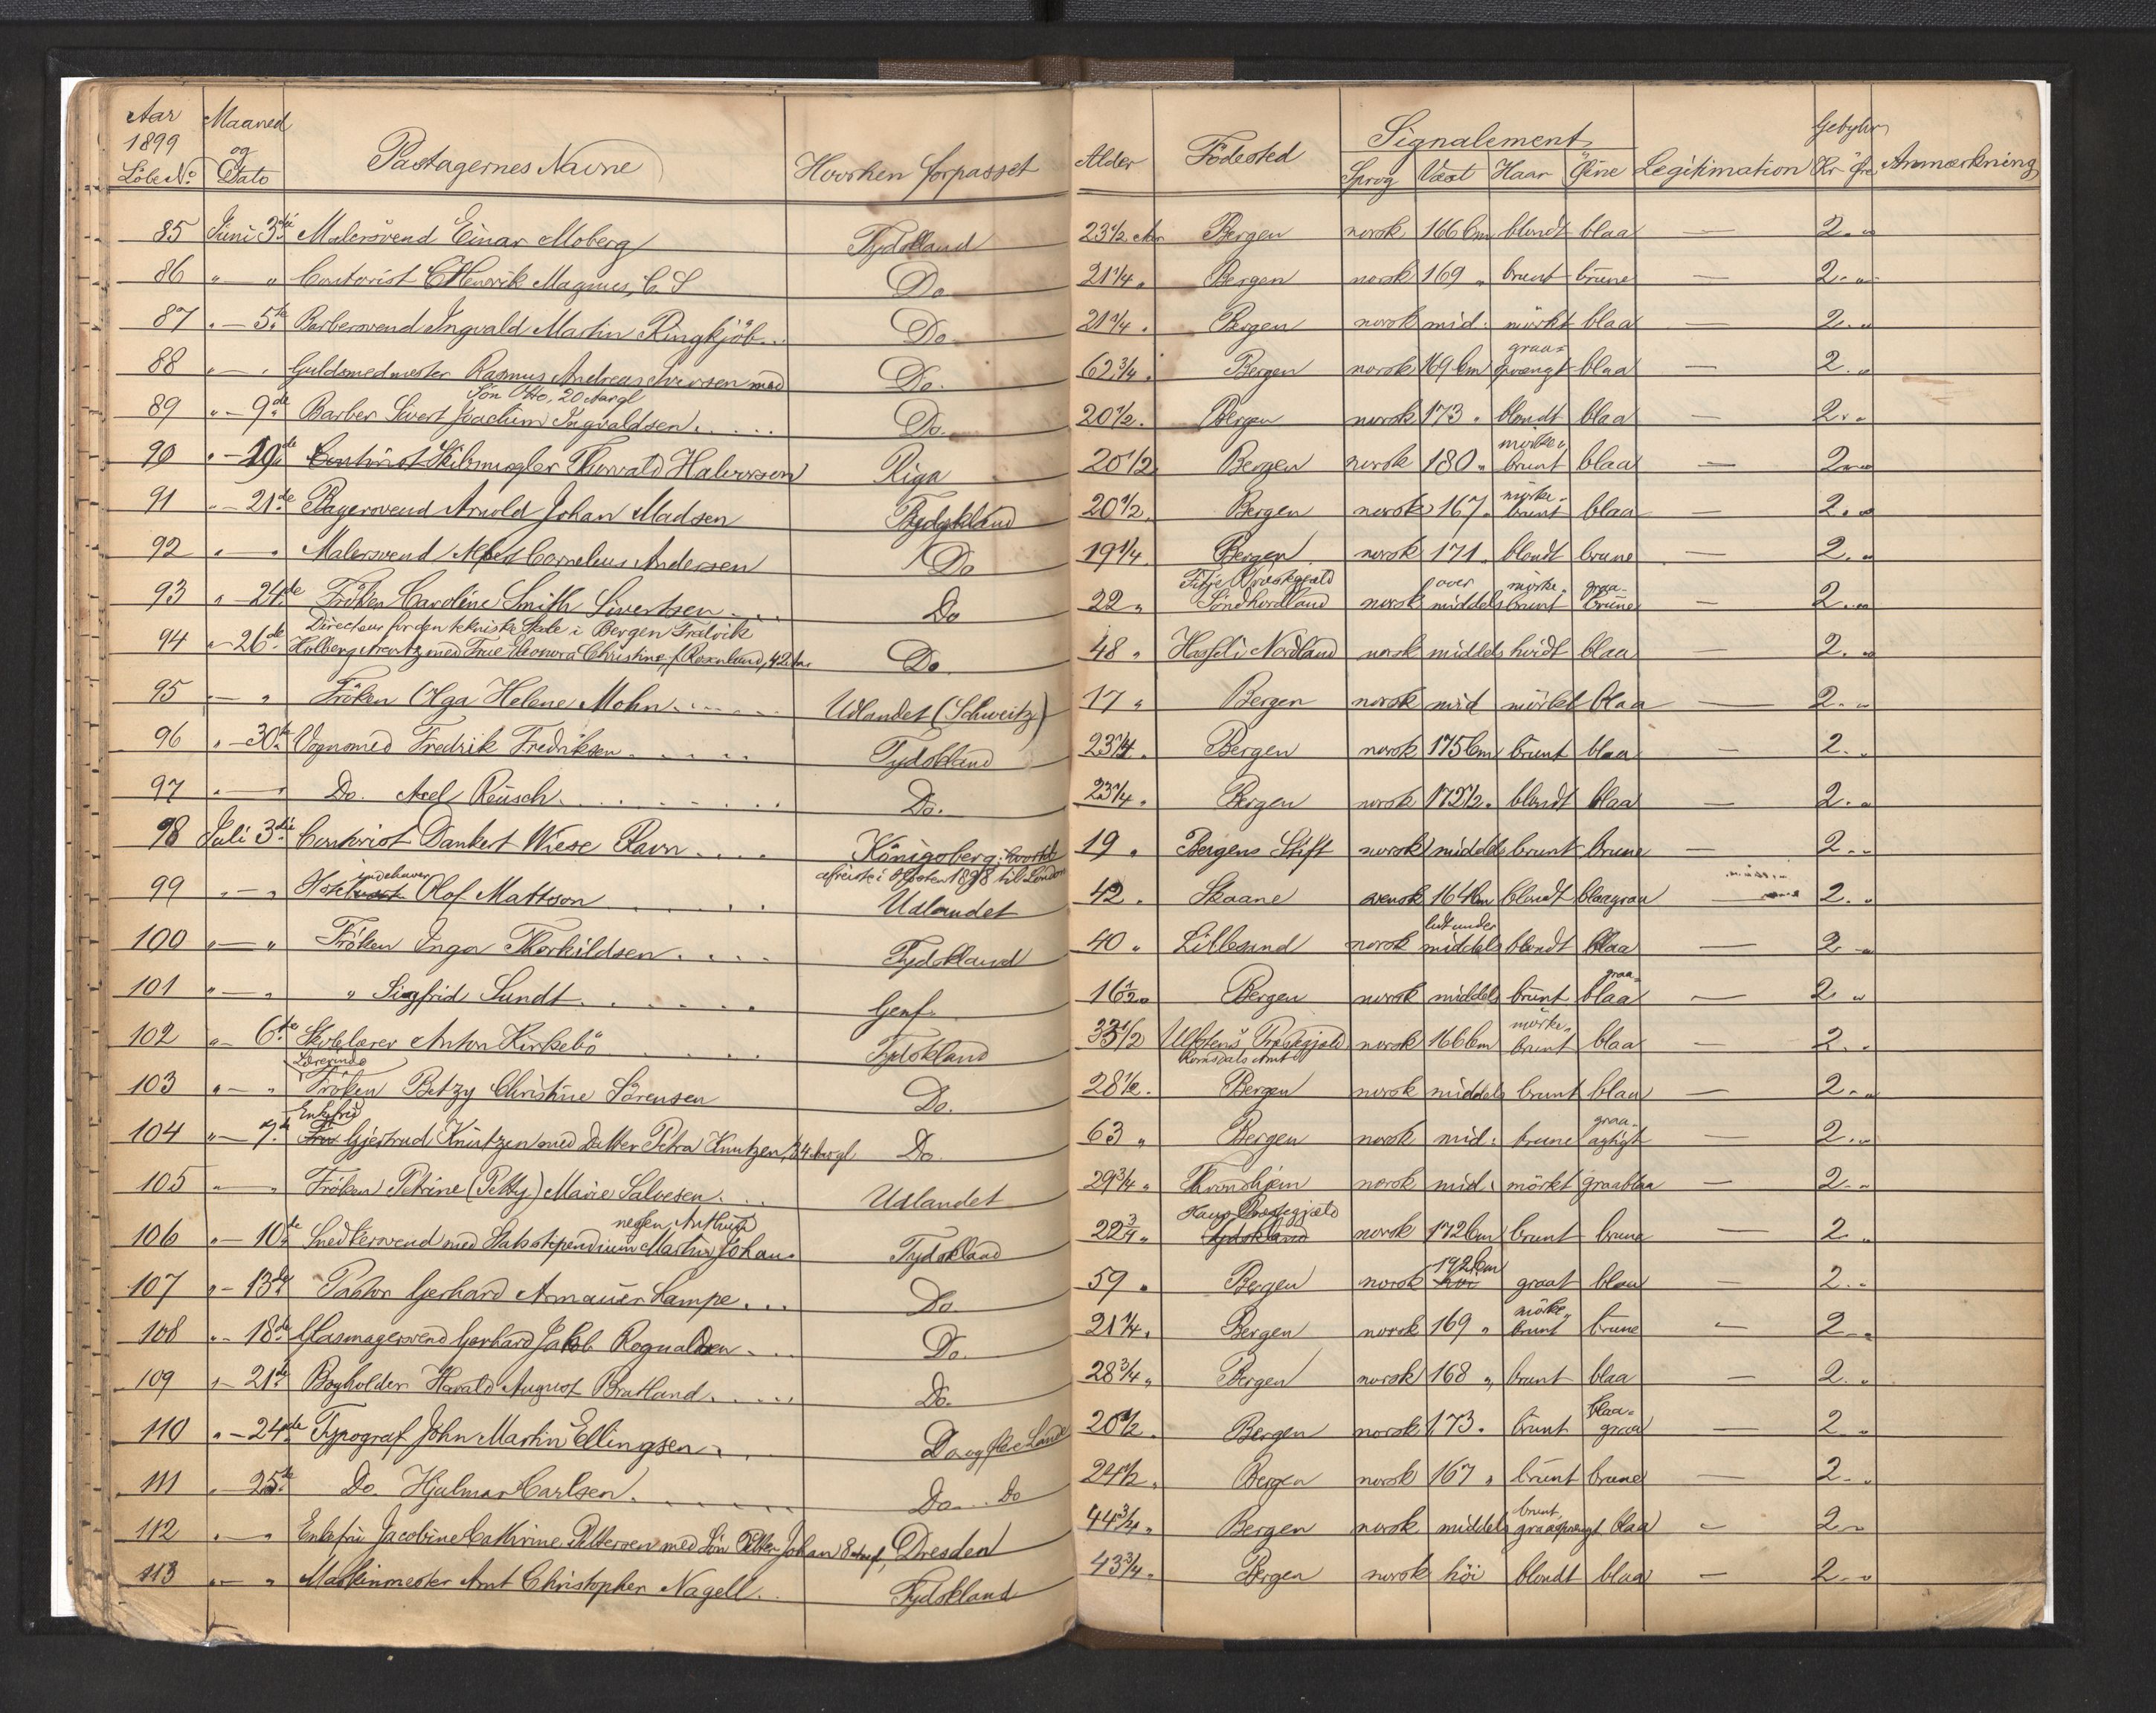 Aar 1899 Löbe No | Maaned og Dato | Pastagernes Navne | Hvorhen forpasset | Alder | Födested | Signalement: Sprog | Væxt | Haar | Öine | Legitimation | Gebyhr Kr Öre | Anmærkning
85 Juni 3die Malersvend Einar Moberg Tydskland 23 1/2 Aar Bergen norsk 166 Cm blondt blaa — 2 "
86 " " Contorist Henrik Magnus, C. S Do 21 1/4 " Bergen norsk 169 " brunt brune — 2 "
87 " 5te Barbersvend Ingvald Martin Ringkjöb Do 21 1/4 " Bergen norsk mid: mörkt blaa — 2 "
88 " " Guldsmedmester Rasmus Andreas Iversen med Sön Otto, 20 Aar gl Do. 62 3/4 " Bergen norsk 169 Cm graasprængt blaa — 2 "
89 " 9de Barber Sivert Joachim Ingvaldsen Do. 20 1/2 " Bergen norsk 173 " blondt blaa — 2 "
90 " 19de Contorist Skibsmægler Thorvald Halvorsen Riga 20 1/2 Bergen norsk 180 " mörkebrunt blaa — 2 "
91 " 21de Bagersvend Arnold Johan Madsen Tydskland 20 1/2 " Bergen norsk 167 " mörkebrunt blaa — 2 "
92 " " Malersvend Albert Cornelius Andersen Do 19 1/4 Bergen norsk 171 " blondt brune — 2 "
93 " 24de Fröken Caroline Smith Sivertsen Do 22 " Fitje Præstegjæld Söndhordland norsk over middels mörkebrunt graabrune — 2 "
94 " 26de Directeur for den tekniske Skole i Bergen Fredrik Holberg Arentz med Frue Leonora Christine f. Rosenlund, 42 Aar Do 48 " Hassel i Nordland norsk middels hvidt blaa — 2 "
95 " " Fröken Olga Helene Mohn Udlandet (Schweitz) 17 " Bergen norsk mid mörkt blaa — 2 "
96 " 30te Vognsmed Fredrik Fredriksen Tydskland 23 1/4 " Bergen norsk 175 Cm brunt blaa — 2 "
97 " " Do. Axel Reusch Do. 23 1/4 " Bergen norsk 172 1/2 " blondt blaa — 2 "
98 Juli 3die Contorist Dankert Wiese Ravn Königsberg; hvortil afreiste i Høsten 1898 til London 19 " Bergens Stift norsk middels brunt brune — 2 "
99 " " Hotelindehaver Olof Mattsson Udlandet 42 " Skaane svensk 164 Cm blondt blaagraa — 2 "
100 " " Fröken Inga Thorkildsen Tydskland 40 " Lillesand norsk lidt under middels blondt blaa — 2 "
101 " " " Sigfrid Sundt Genf. 16 1/2 " Bergen norsk middels brunt graablaa — 2 "
102 " 6te Skolelærer Anton Kirkebö Tydskland 33 1/2 Ulstens Præstegjæld, Romsdals Amt norsk 166 Cm mörkebrunt blaa — 2 "
103 " " Lærerinde Fröken Betzy Christine Sörensen Do. 28 1/2 " Bergen norsk middels brunt blaa — 2 "
104 " 7de Enkefru Fru Gjertrud Knutzen med Datter Petra Knutzen, 34 Aar gl Do. 63 " Bergen norsk mid: brune graaagtigt — 2 "
105 " " Fröken Petrine (Petty) Marie Salvesen Udlandet 29 3/4 " Throndhjem norsk mid: mörkt graablaa — 2 "
106 " 10de Snedkersvend med Statsstipendium Martin Johannesen Tydskland 22 3/4 " Haus Præstegjæld Tydskland norsk 172 Cm brunt brune — 2 "
107 " 13de Pastor Gerhard Armauer Lampe Do. 59 " Bergen norsk höi 192 Cm graat blaa — 2 "
108 " 18de Glasmagersvend Gerhard Jakob Rognaldsen Do. 21 1/4 " Bergen norsk 169 " mörkebrunt brune — 2 "
109 " 21de Bogholder Harald August Bratland Do. 28 3/4 " Bergen norsk 168 " brunt blaa — 2 "
110 " 24de Typograf John Martin Ellingsen Do og flere Lande 20 1/2 " Bergen norsk 173 " brunt blaagraa — 2 "
111 " 25de Do. Hjalmar Carlsen Do Do 24 1/2 " Bergen norsk 167 " brunt brune — 2 "
112 " " Enkefru Jacobine Cathrine Pettersen med Sön Petter Johan 8 Aar gl, Dresden 44 3/4 " Bergen norsk middels brunt, graasprængt blaa — 2 "
113 " " Maskinmester Arnt Christopher Nagell Tydskland 43 3/4 " Bergen norsk höi blondt blaa — 2 "